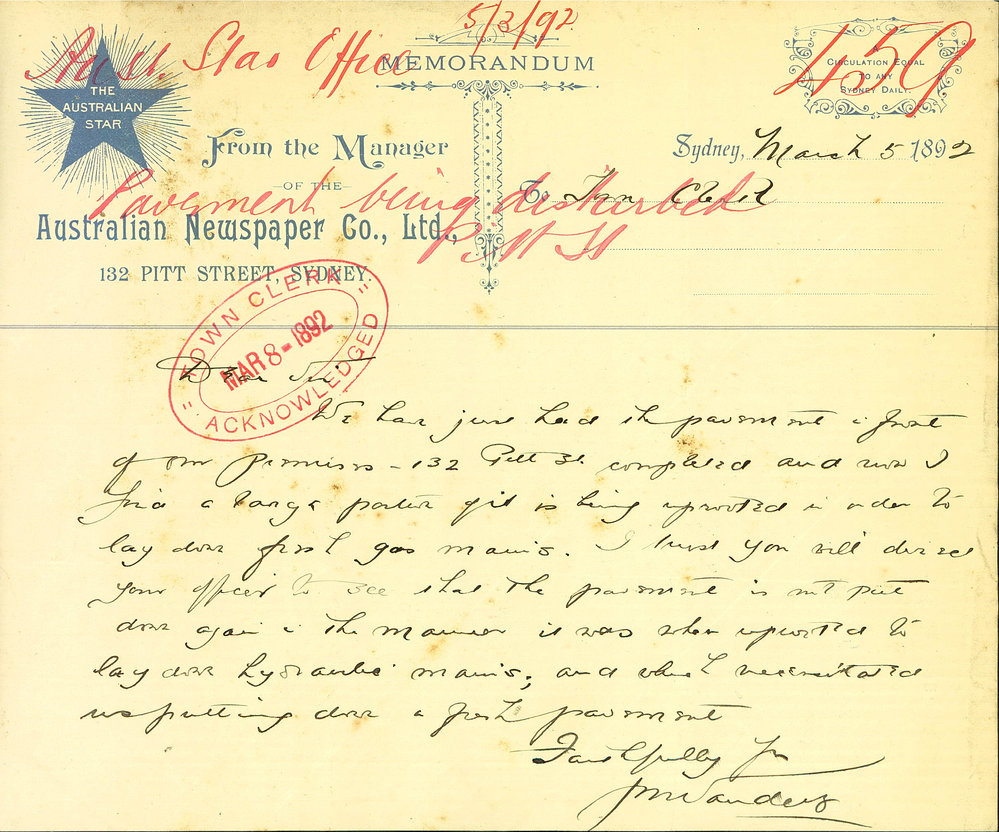 Aust. Star Office
5/3/92
459
THE
AUSTRALIAN
STAR
MEMORANDUM
CIRCULATION EQUAL
TO ANY
SYDNEY DAILY.
From the Manager
OF THE
Australian Newspaper Co., Ltd.,
132 PITT STREET, SYDNEY.
Sydney, March 5 1892
To Town Clerk
Pavement being disturbed
Pitt St
TOWN CLERK
MAR 8 - 1892
ACKNOWLEDGED
Dear Sir
We have just had the pavement in front
of our premises - 132 Pitt St completed and now I
find a large portion of it is being uprooted in order to
lay down fresh gas mains. I trust you will direct
your officer to see that the pavement is not put
down again in the manner it was when uprooted to
lay down hydraulic mains, and which necessitated
us putting down a fresh pavement
Faithfully Yrs